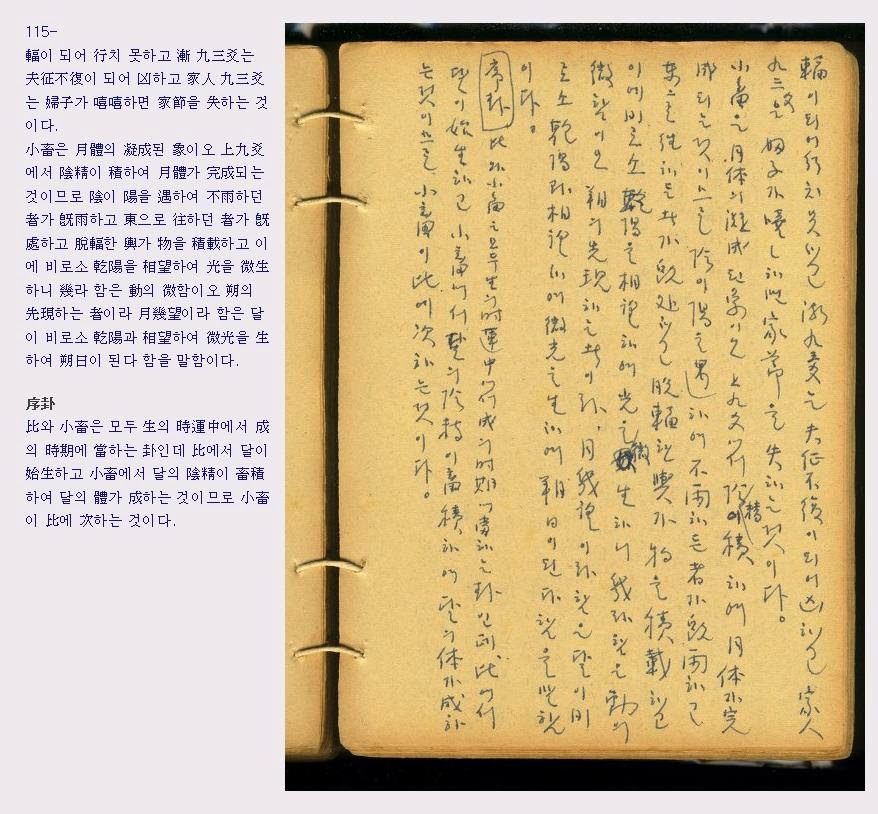 115-
輻이 되어 行치 못하고 漸 九三爻는
夫征不復이 되어 凶하고 家人 九三爻
는 婦子가 嘻嘻하면 家節을 失하는 것
이다.
小畜은 月體의 凝成된 象이오 上九爻
에서 陰精이 積하여 月體가 完成되는
것이므로 陰이 陽을 遇하여 不雨하던
者가 旣雨하고 東으로 往하던 者가 旣
處하고 脫輻한 輿가 物을 積載하고 이
에 비로소 乾陽을 相望하여 光을 微生
하니 幾라 함은 動의 微함이오 朔의
先現하는 者이라 月幾望이라 함은 달
이 비로소 乾陽과 相望하여 微光을 生
하여 朔日이 된다 함을 말함이다.
序卦
比와 小畜은 모두 生의 時運中에서 成
의 時期에 當하는 卦인데 比에서 달이
始生하고 小畜에서 달의 陰精이 畜積
하여 달의 體가 成하는 것이므로 小畜
이 比에 次하는 것이다.
輻이 되어 行치 못하고 漸 九三爻는 夫征不復이 되어 凶하고 家人
九三爻는 婦子가 嘻嘻하면 家節을 失하는 것이다。
小畜은 月体의 凝成된 象이오 上九爻에서 陰精이 積하여 月体가 完
成되는 것이므로 陰이 陽을 遇하여 不雨하든 者가 旣雨하고
東으로 往하든 者가 旣処하고 脫輻한 輿가 物을 積載하고
이에 비로소 乾陽을 相望하여 光을 微生하니 幾라 함은 動의
微함이오 朔의 先現하는 者이라, 月幾望이라 함은 달이 비
로소 乾陽과 相望하여 微光을 生하여 朔日이 된다 함을 말함
이다。
序卦 比와 小畜은 모두 生의 時運中에서 成의 時期에 當하는 卦인데, 比에서
달이 始生하고 小畜에서 달의 陰精이 畜積하여 달의 体가 成하
는 것이므로 小畜이 比에 次하는 것이다。